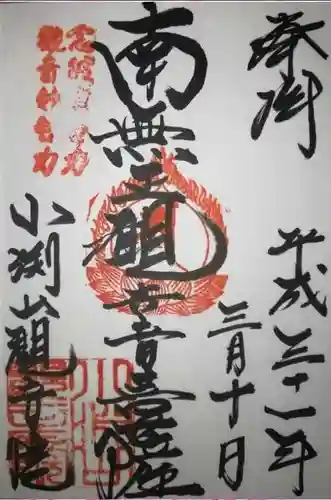 奉拝
平成三十一年
三月十日
南無聖観世音菩薩
念彼観音力
観音妙智力
小渕山観音院